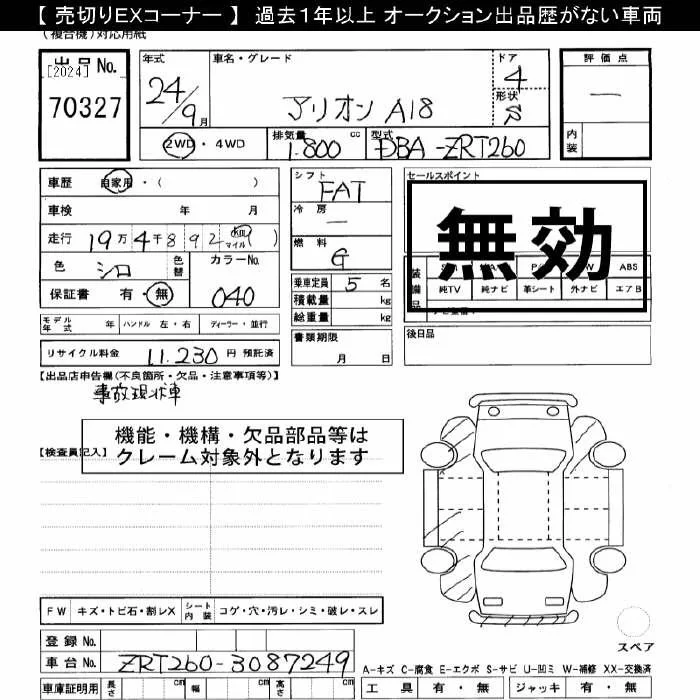 【 売切りEXコーナー 】 過去1年以上 オークション出品歴がない車両
(複合機)対応用紙
出品No.
[2024]
70327
年式
24/9月
車名・グレード
アリオン A18
ドア
4
形状
S
評価点
―
内装
2WD・4WD
排気量 cc
1.800
型式
DBA-ZRT260
車歴 自家用・( )
車検 年 月
走行 19万4千892 Km マイル ( )
色 シロ
色替
カラーNo.
040
保証書 有・無
シフト
FAT
冷房
―
燃料
G
乗車定員 5 名
積載量 kg
総重量 kg
書類期限
月 日
セールスポイント
無効
ABS
純TV 純ナビ 革シート 外ナビ エアB
後日品
モデル年式 年 ハンドル 左・右 ディーラー・並行
リサイクル料金 11.230 円 預託済
【出品店申告欄(不良箇所・欠品・注意事項等)】
事故現状車
【検査員記入】
機能・機構・欠品部品等は
クレーム対象外となります
FW キズ・トビ石・割レX シート内装 コゲ・穴・汚レ・シミ・破レ・スレ
登録No.
車台No. ZRT260-3087249
車庫証明用 長さ cm 幅 cm 高さ cm
スペア
A-キズ C-腐食 E-エクボ S-サビ U-凹ミ W-補修 XX-交換済
工具 有・無 ジャッキ 有・無